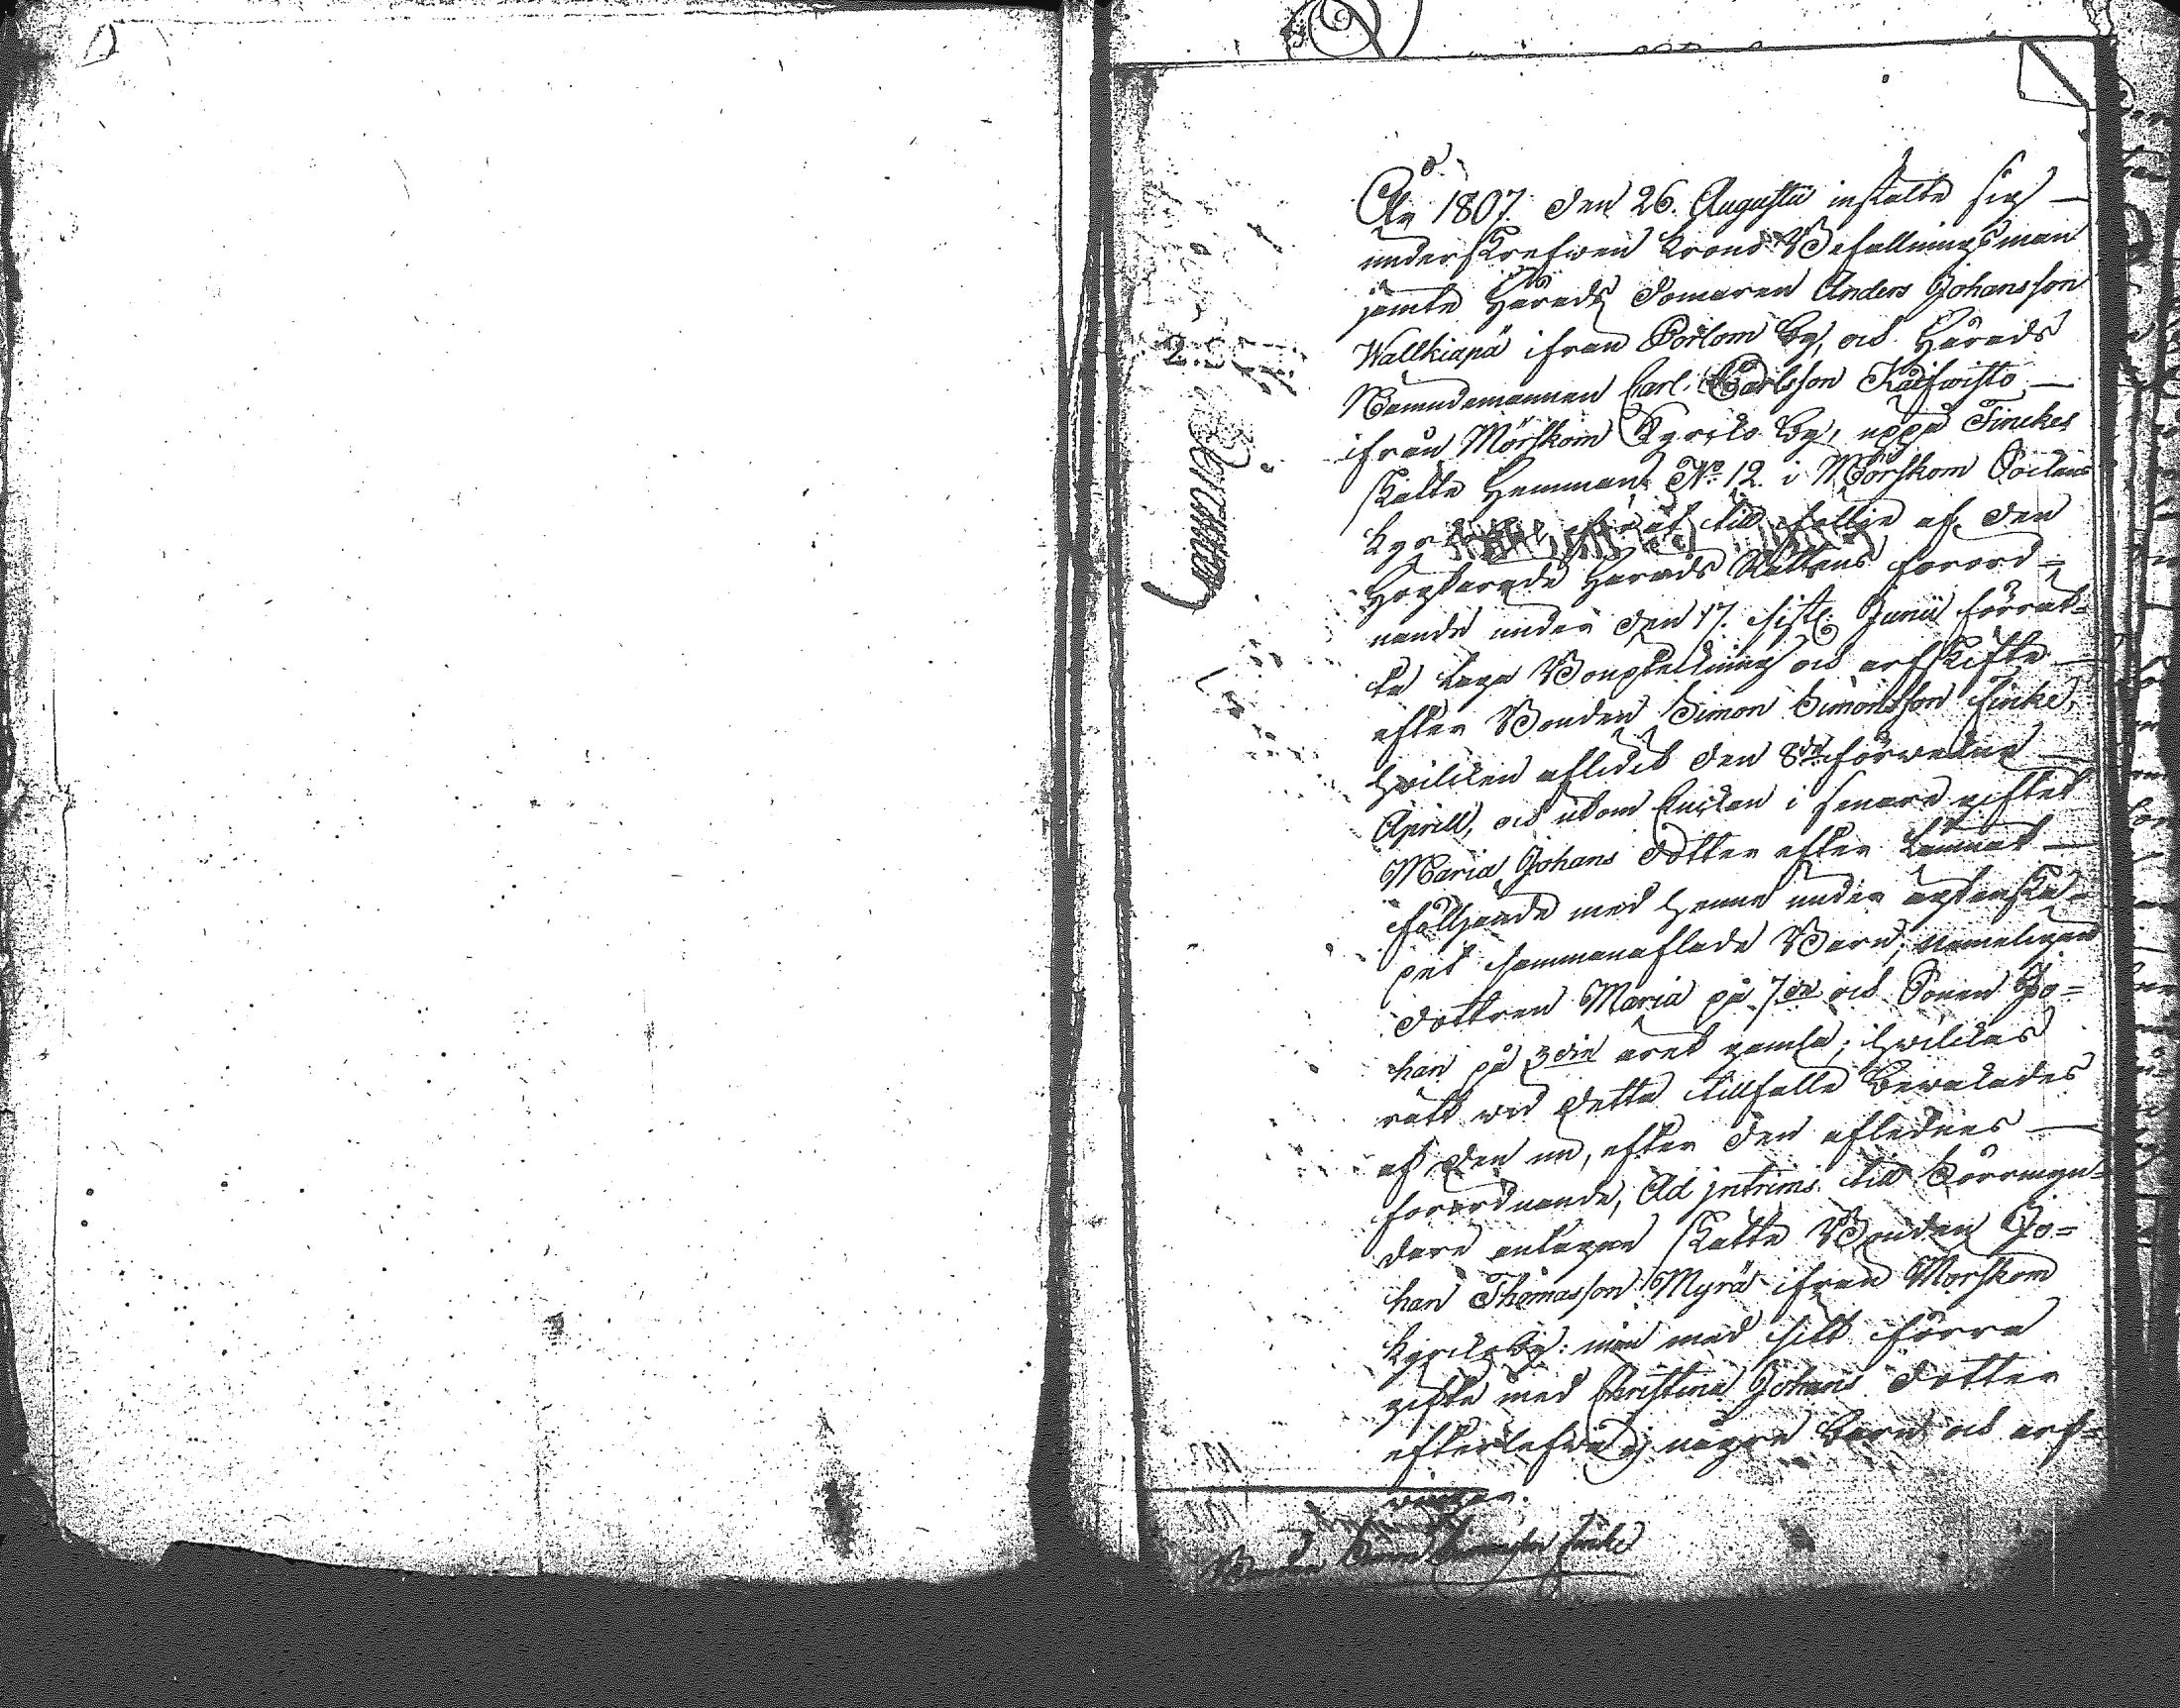 År 1807 den 26. Augusti instälte sig
underskrefwen Krono Befallningsman
jämte Härads Domaren Anders Johansson
Wallkiapä ifrån Porlom by, och Härads
Nämndemannen Carl Carlsson Koifwisto
ifrån Mörskom Kyrcko by, uppå Finckes
Skatte Hemman No 12. i Mörskom Sockens
Kyr till följe af den
Häradz Rättens förord-
nande under den 17. sistl. Junii förrät-
ta laga Boupteckning och arfskifte
efter Bonden Simon Simonsson Fincke,
hwilcken aflidit den 8de förwekne
Aprill, och utom Enckan i senare giftet
Maria Johans dotter efter lämnat
följande med henne under ägtenska-
pet sammanaflade Barn; nämeligen
dottren Maria på 7de och Sonen Jo-
han på 3die året gamla; hwilckas
rätt wid detta tillfälle bewakades
af den nu, efter den aflednes
förordnande, Ad jntrims till Förmyn-
dare antagne Skatte Bonden Jo-
han Thomasson Myrä ifrån Mörskom
Kyrckoby: men med sitt förra
gifte med Christina Johans dotter
efterlefwa ej några Barn och arf-
wingar.
Bonden Simon Simonsson Fincke